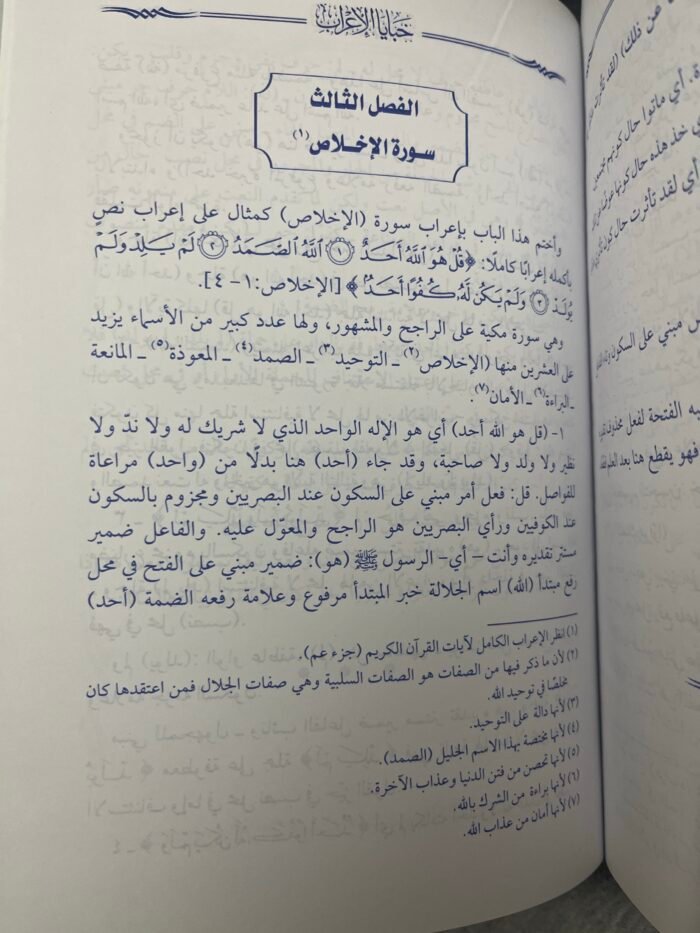 خبايا الإعراب
الفصل الثالث
سورة الإخلاص(١)
وأختم هذا الباب بإعراب سورة (الإخلاص) كمثال على إعراب نص
بأكمله إعرابًا كاملًا: ﴿قُلْ هُوَ اللَّهُ أَحَدٌ ۝١ اللَّهُ الصَّمَدُ ۝٢ لَمْ يَلِدْ وَلَمْ
يُولَدْ ۝٣ وَلَمْ يَكُن لَّهُ كُفُوًا أَحَدٌ﴾ [الإخلاص:١-٤].
وهي سورة مكية على الراجح والمشهور، ولها عدد كبير من الأسماء يزيد
على العشرين منها (الإخلاص(٢) ـ التوحيد(٣) ـ الصمد(٤) ـ المعوذة(٥) ـ المانعة
ـ البراءة(٦) ـ الأمان(٧).
١- (قل هو الله أحد) أي هو الإله الواحد الذي لا شريك له ولا ندّ ولا
نظير ولا ولد ولا صاحبة، وقد جاء (أحد) هنا بدلًا من (واحد) مراعاة
للفواصل. قل: فعل أمر مبني على السكون عند البصريين ومجزوم بالسكون
عند الكوفيين ورأي البصريين هو الراجح والمعوّل عليه. والفاعل ضمير
مستتر تقديره وأنت– أي- الرسول ﷺ (هو): ضمير مبني على الفتح في محل
رفع مبتدأ (الله) اسم الجلالة خبر المبتدأ مرفوع وعلامة رفعه الضمة (أحد)
(١) انظر الإعراب الكامل لآيات القرآن الكريم (جزء عم).
(٢) لأن ما ذكر فيها من الصفات هو الصفات السلبية وهي صفات الجلال فمن اعتقدها كان
مخلصًا في توحيد الله.
(٣) لأنها دالة على التوحيد.
(٤) لأنها مختصة بهذا الاسم الجليل (الصمد).
(٥) لأنها تحصن من فتن الدنيا وعذاب الآخرة.
(٦) لأنها براءة من الشرك بالله.
(٧) لأنها أمان من عذاب الله.
من ذلك) (لقد تأثرت
أي ماتوا حال كونهم مجتمعين
خذ هذه حال كونها
أي لقد تأثرت حال كون
مبني على السكون
الفتحة لفعل محذوف
فهو يقطع هنا بعد العلم